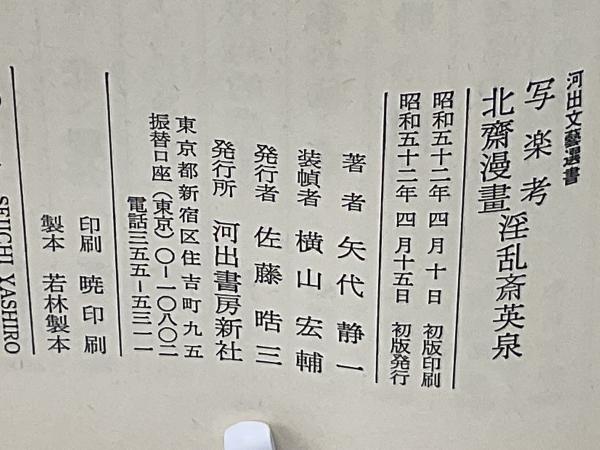 河出文藝選書
写楽考
北齋漫畫
淫乱斎英泉
昭和五十二年 四月 十日 初版印刷
昭和五十二年 四月十五日 初版発行
著者 矢代静一
装幀者 横山宏輔
発行者 佐藤晧三
発行所 河出書房新社
東京都新宿区住吉町九五
振替口座(東京)〇―一〇八〇二
電話三五五―五三一一
印刷 暁印刷
製本 若林製本
SEIICHI YASHIRO